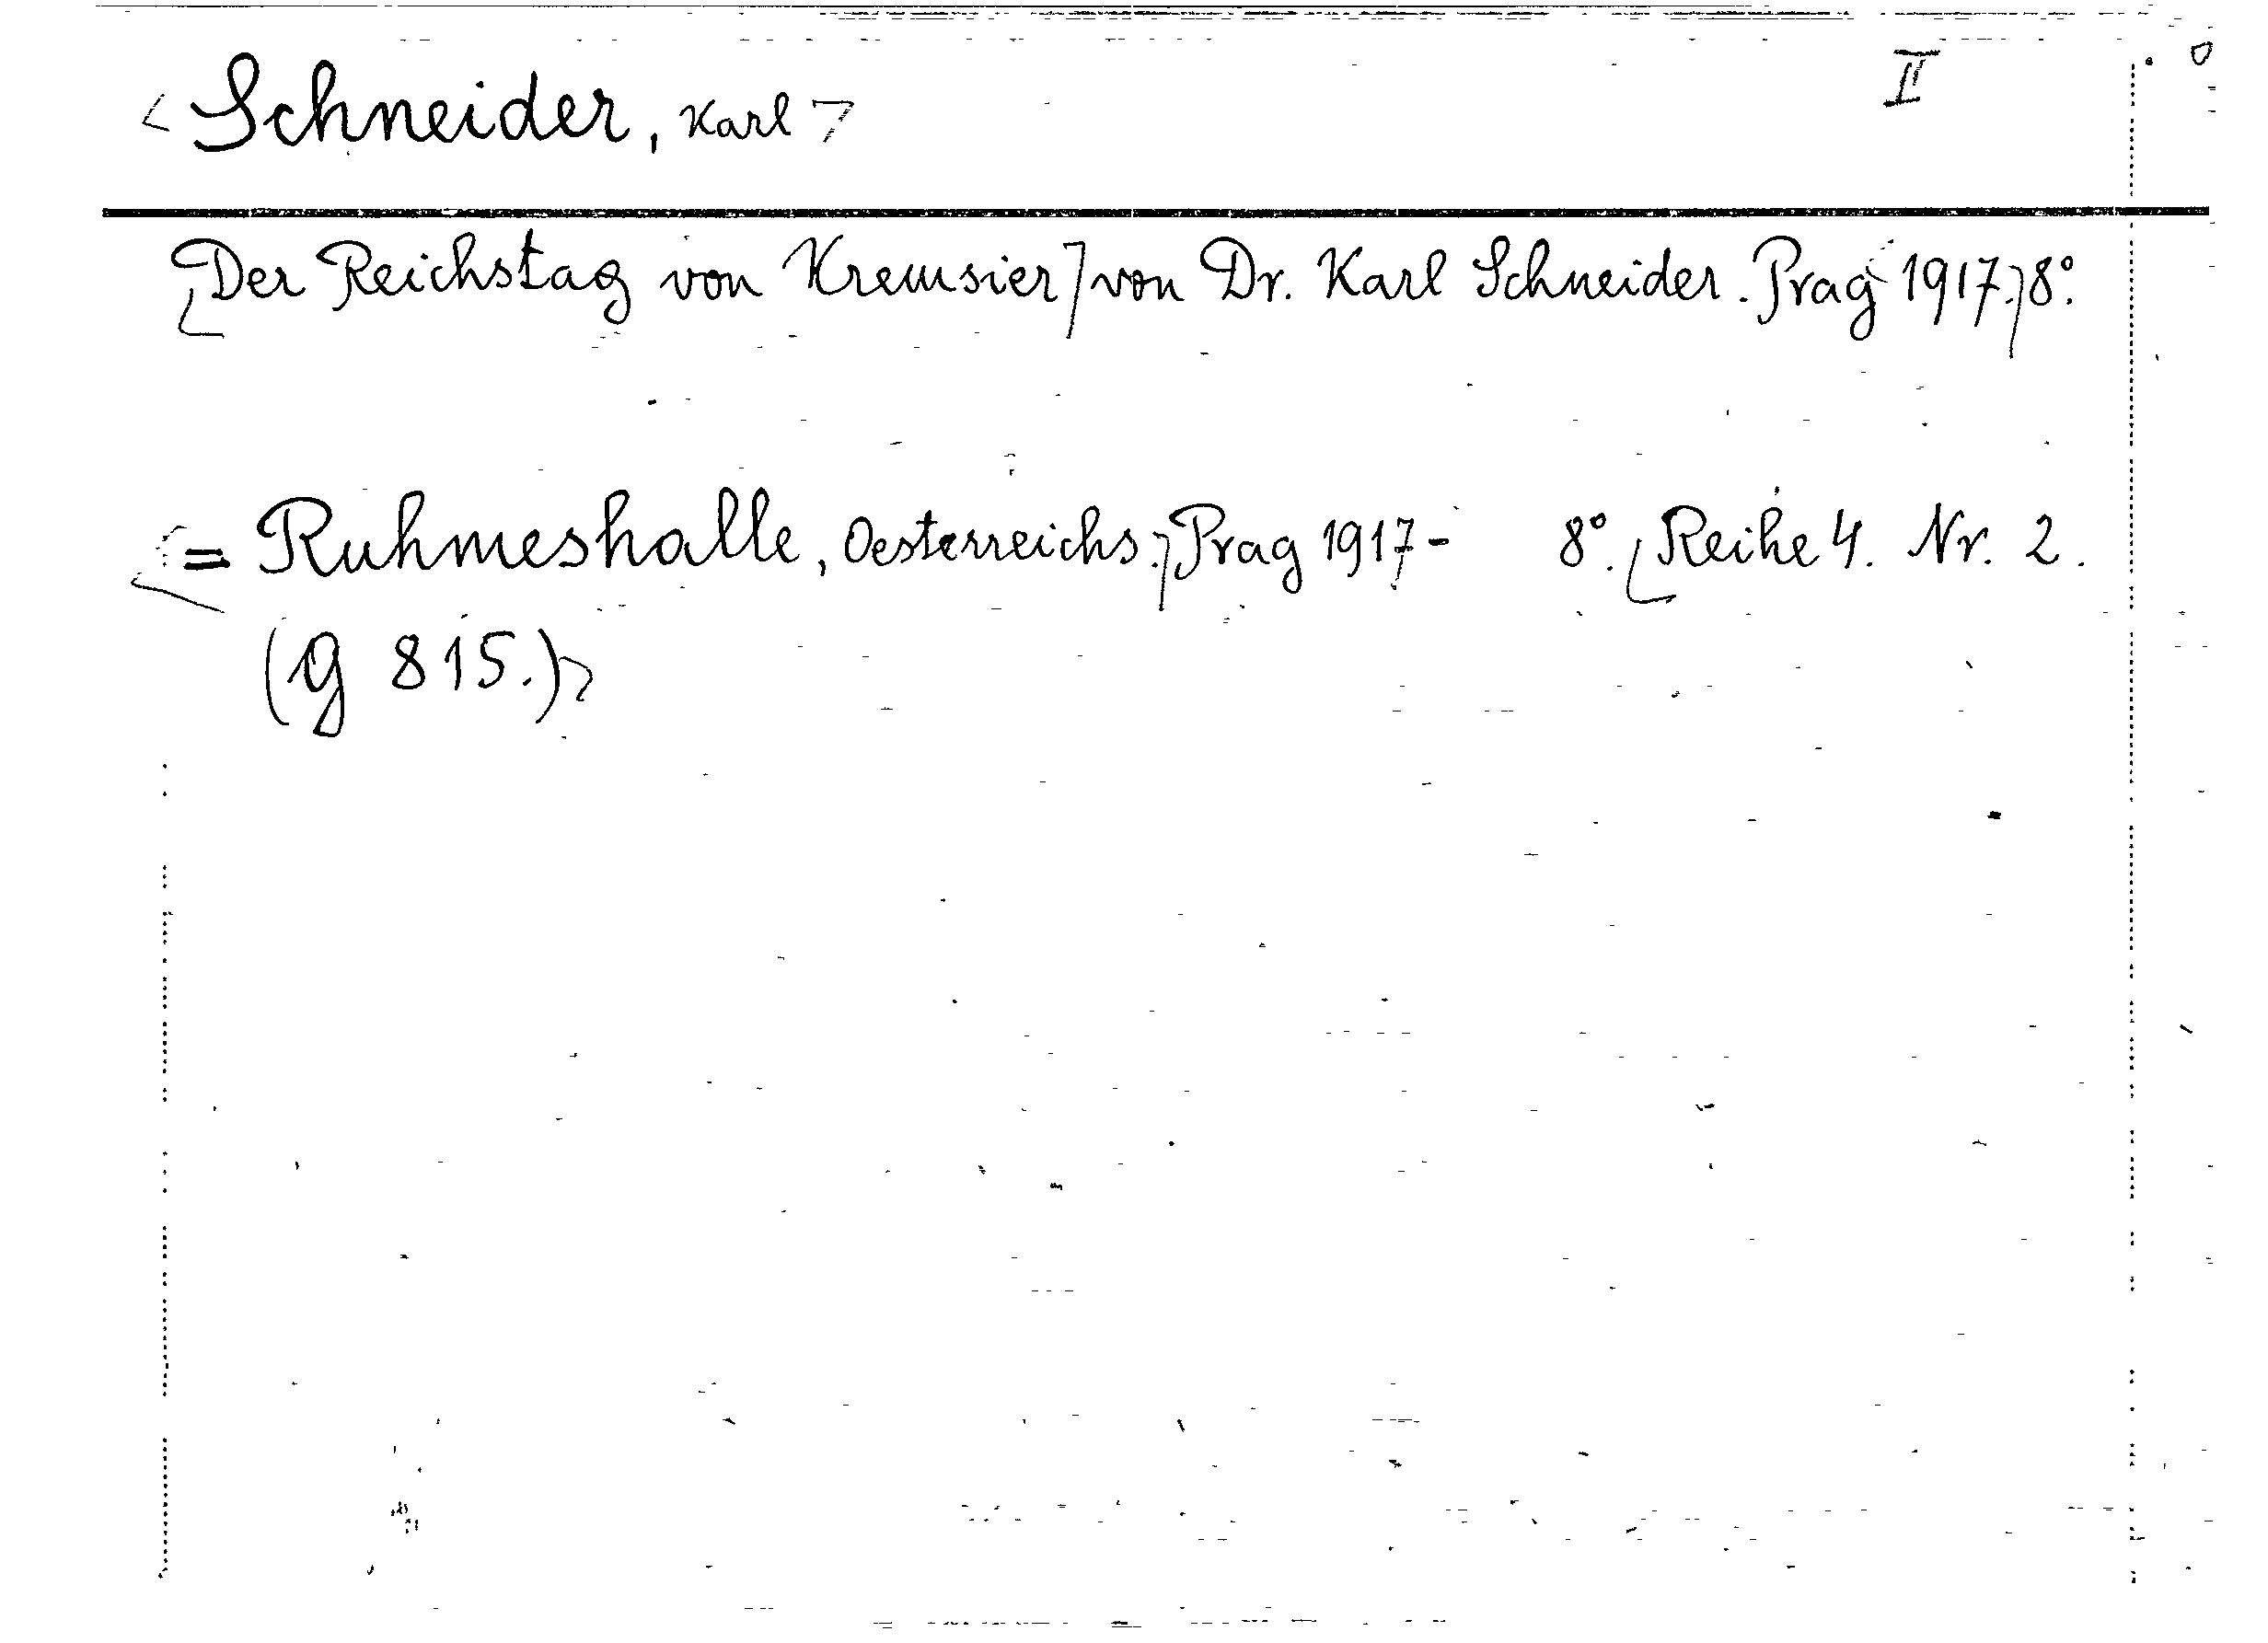 < Schneider, Karl > II
[Der Reichstag von Kremsier] von Dr. Karl Schneider. Prag 1917.] 8°.
[= Ruhmeshalle, Oesterreichs.] Prag 1917- 8°. [Reihe 4. Nr. 2.
(g 815.)]